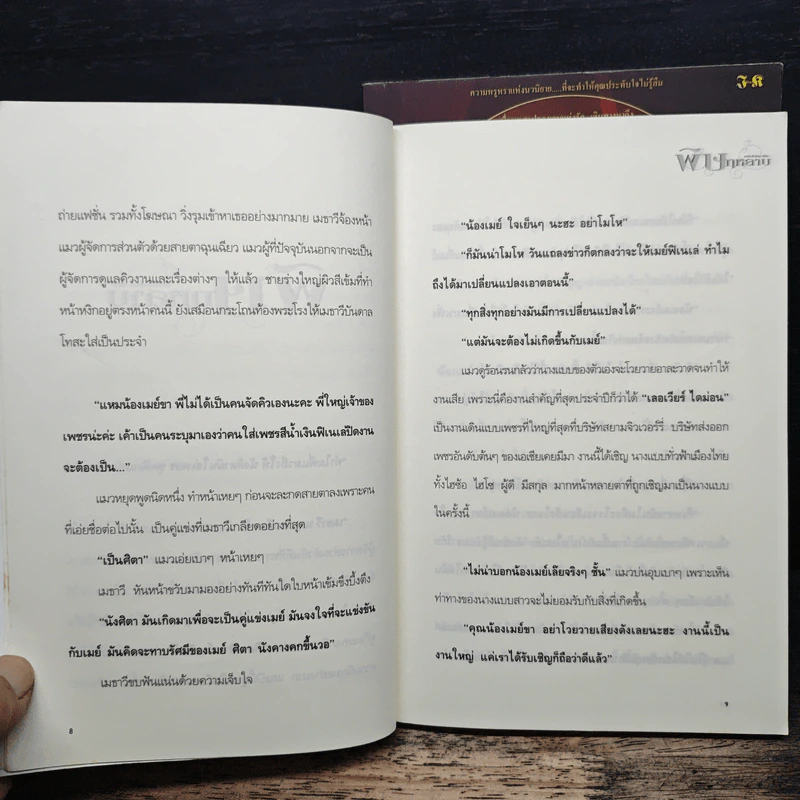 ความหรูหราแห่งนวนิยาย.....ที่จะทำให้คุณประทับใจไม่รู้ลืม
ถ่ายแฟชั่น รวมทั้งโฆษณา วิ่งรุมเข้าหาเธออย่างมากมาย เมธาวีจ้องหน้า
แมวผู้จัดการส่วนตัวด้วยสายตาฉุนเฉียว แมวผู้ที่ปัจจุบันนอกจากจะเป็น
ผู้จัดการดูแลคิวงานและเรื่องต่างๆ ให้แล้ว ชายร่างใหญ่ผิวสีเข้มที่ทำ
หน้าหงิกอยู่ตรงหน้าคนนี้ ยังเสมือนกระโถนท้องพระโรงให้เมธาวีบันดาล
โทสะใส่เป็นประจำ
“แหมน้องเมย์ขา พี่ไม่ได้เป็นคนจัดคิวเองนะคะ พี่ใหญ่เจ้าของ
เพชรน่ะค่ะ เค้าเป็นคนระบุมาเองว่าคนใส่เพชรสีน้ำเงินฟิเนเล่ปิดงาน
จะต้องเป็น...”
แมวหยุดพูดนิดหนึ่ง ทำหน้าเหยๆ ก่อนจะละกดสายตาลงเพราะคน
ที่เอ่ยชื่อต่อไปนั้น เป็นคู่แข่งที่เมธาวีเกลียดอย่างที่สุด
“เป็นศิตา” แมวเอ่ยเบาๆ หน้าเหยๆ
เมธาวี หันหน้าขวับมามองอย่างทันทีทันใดใบหน้าเข้มขึงบึ้งตึง
“นังศิตา มันเกิดมาเพื่อจะเป็นคู่แข่งเมย์ มันจงใจที่จะแข่งขัน
กับเมย์ มันคิดจะทาบรัศมีของเมย์ ศิตา นังคางคกขึ้นวอ”
เมธาวีขบฟันแน่นด้วยความเจ็บใจ
8
“น้องเมย์ ใจเย็นๆ นะฮะ อย่าโมโห”
“ก็มันน่าโมโห วันแถลงข่าวก็ตกลงว่าจะให้เมย์ฟิเนเล่ ทำไม
ถึงได้มาเปลี่ยนแปลงเอาตอนนี้”
“ทุกสิ่งทุกอย่างมันมีการเปลี่ยนแปลงได้”
“แต่มันจะต้องไม่เกิดขึ้นกับเมย์”
แมวดูร้อนรนกลัวว่านางแบบของตัวเองจะโวยวายอาละวาดจนทำให้
งานเสีย เพราะนี่คืองานสำคัญที่สุดประจำปีก็ว่าได้ “เลอเวียร์ ไดม่อน”
เป็นงานเดินแบบเพชรที่ใหญ่ที่สุดที่บริษัทสยามจิวเวอร์รี่ บริษัทส่งออก
เพชรอันดับต้นๆ ของเอเชียเคยมีมา งานนี้ได้เชิญ นางแบบทั่วฟ้าเมืองไทย
ทั้งไฮซ้อ ไฮโซ ผู้ดี มีสกุล มากหน้าหลายตาที่ถูกเชิญมาเป็นนางแบบ
ในครั้งนี้
“ไม่น่าบอกน้องเมย์เล๊ยจริงๆ ชั้น” แมวบ่นอุบเบาๆ เพราะเห็น
ท่าทางของนางแบบสาวจะไม่ยอมรับกับสิ่งที่เกิดขึ้น
“คุณน้องเมย์ขา อย่าโวยวายเสียงดังเลยนะฮะ งานนี้เป็น
งานใหญ่ แค่เราได้รับเชิญก็ถือว่าดีแล้ว”
9